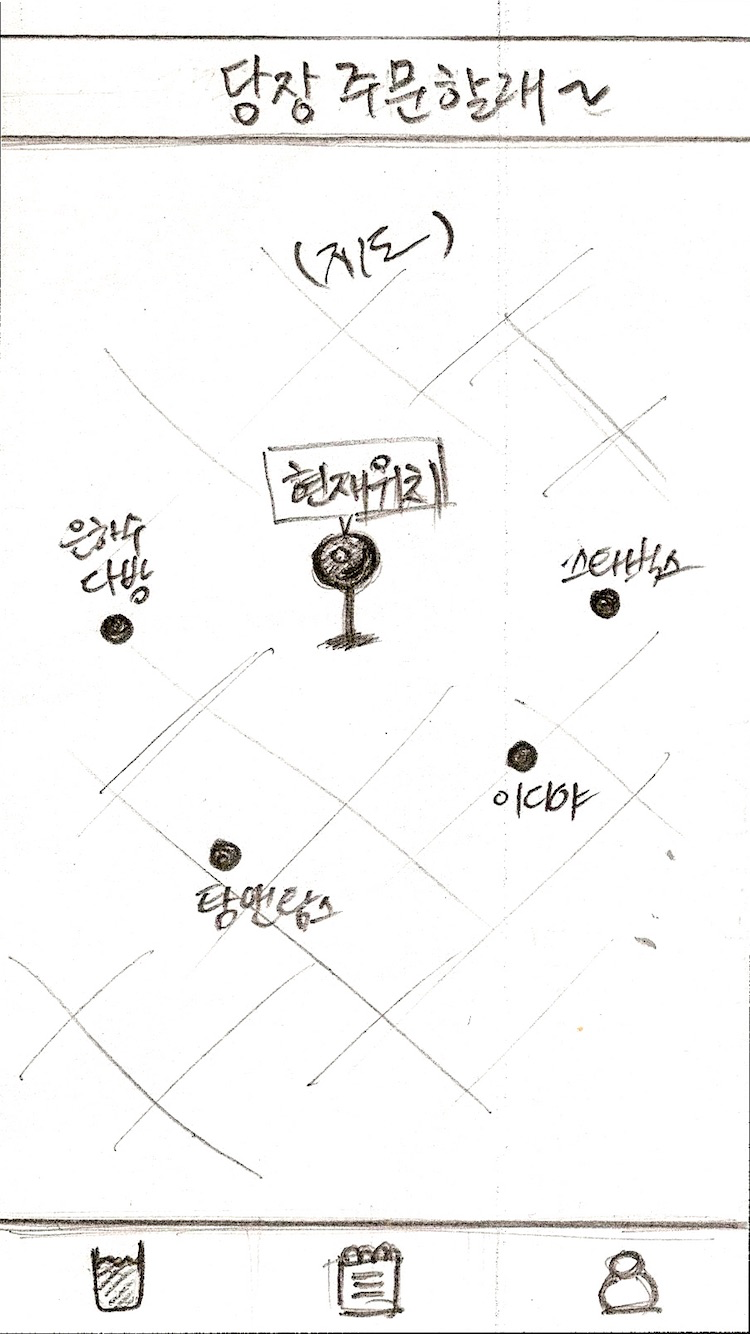 당장 주문할래~
(지도)
현재위치
은하수
다방
스타벅스
이디야
탐앤탐스